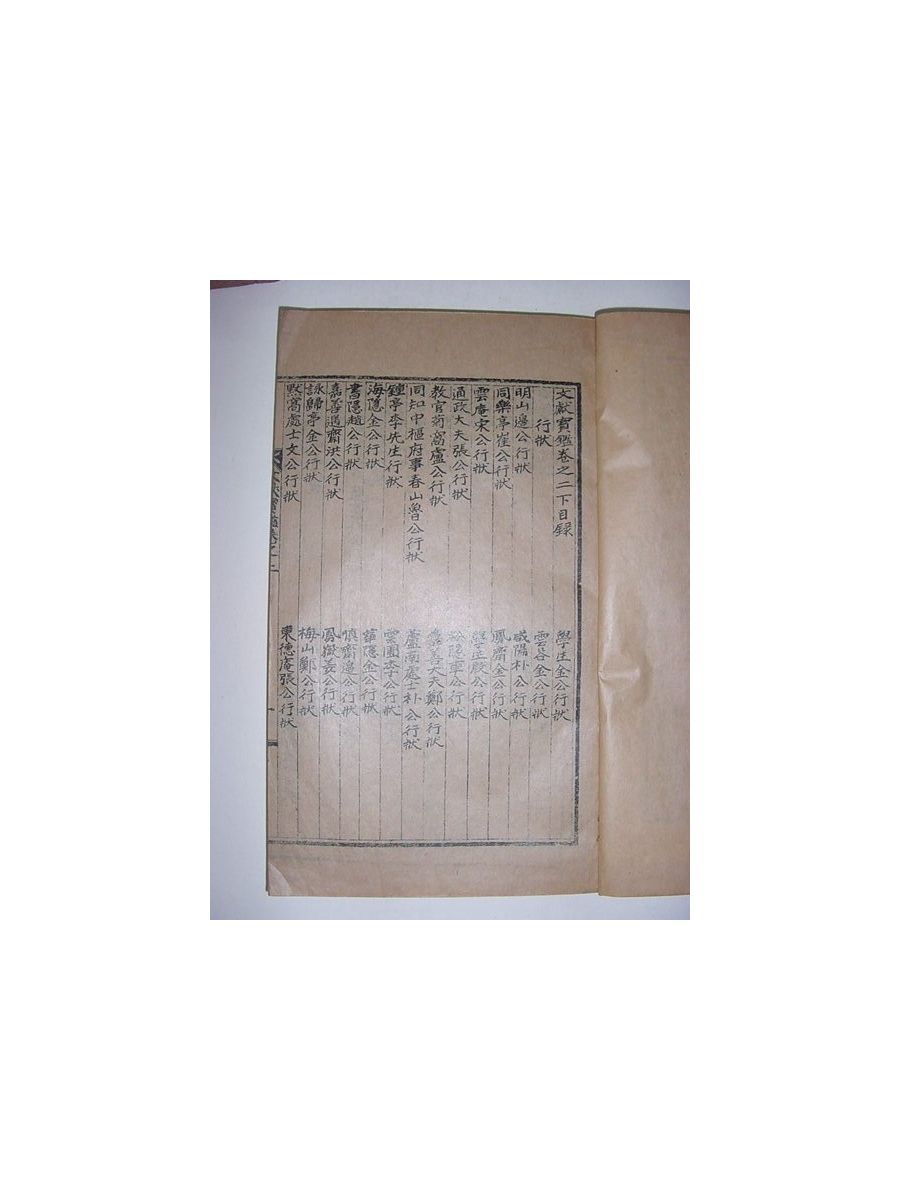 文献寶鑑卷之二下目録
行狀
明山邊公行狀
同樂亭崔公行狀
雲庵宋公行狀
通政大夫張公行狀
教官菊窩盧公行狀
同知中樞府事春山魯公行狀
鍾亭李先生行狀
海隱金公行狀
書隱趙公行狀
嘉善邁齋洪公行狀
詠歸亭金公行狀
默窩處士文公行狀
學生金公行狀
雲谷金公行狀
咸陽朴公行狀
鳳齋金公行狀
學生殷公行狀
松隱車公行狀
嘉善大夫鄭公行狀
蘆南處士朴公行狀
雲圃李公行狀
華隱金公行狀
慎齋邊公行狀
鳳嶽姜公行狀
梅山鄭公行狀
秉德庵張公行狀
文献寶鑑卷之二
一